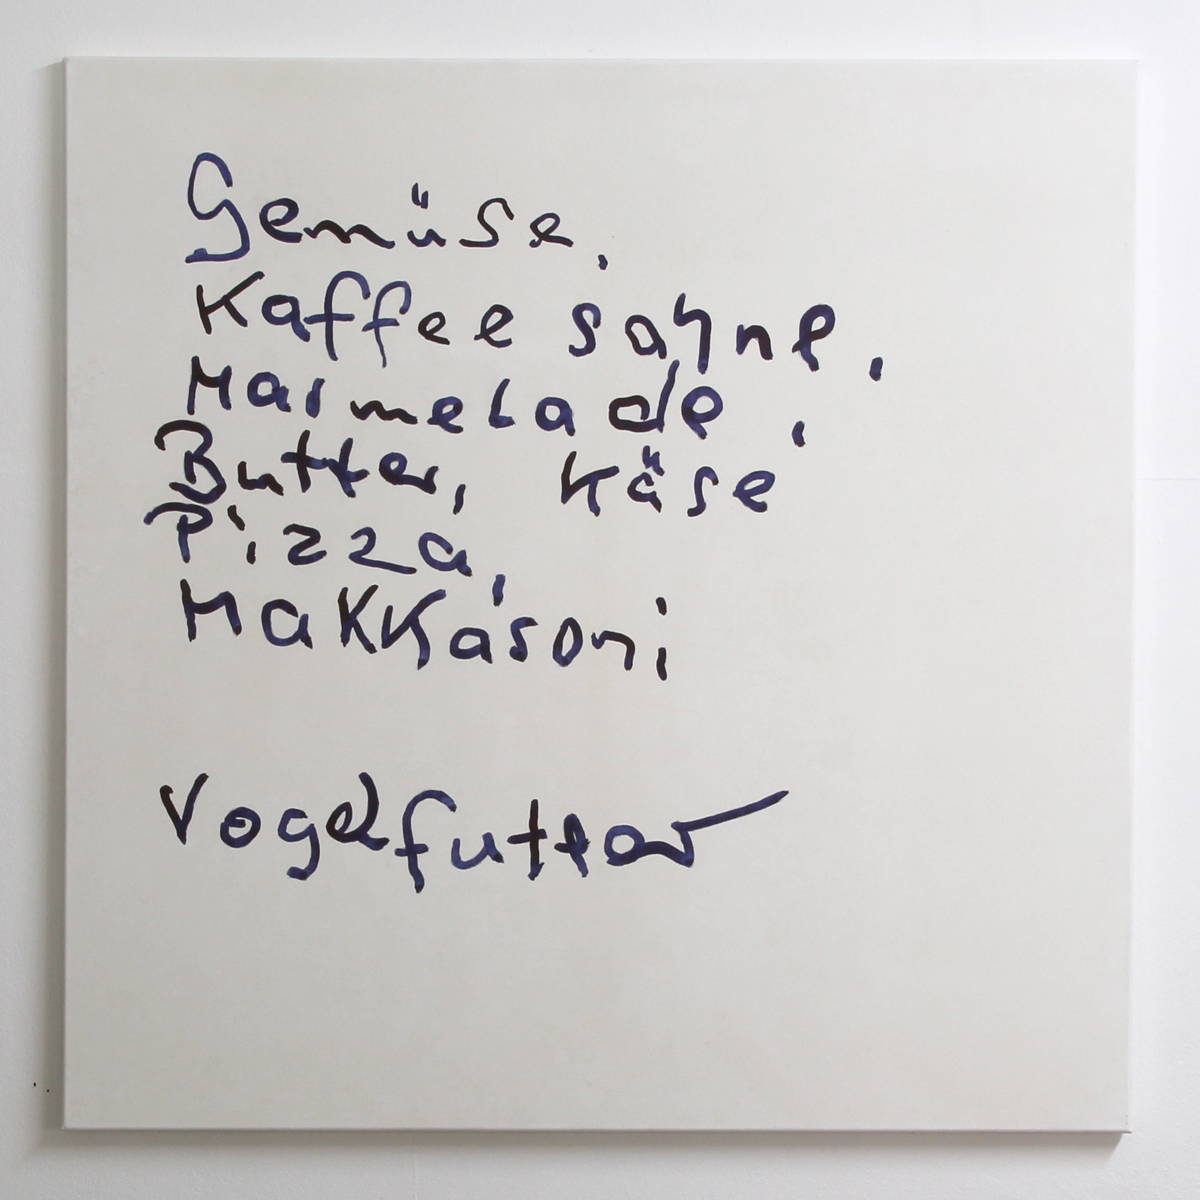 Gemüse,
Kaffee sahne,
Marmelade,
Butter, Käse
Pizza,
Makkaroni
Vogelfutter